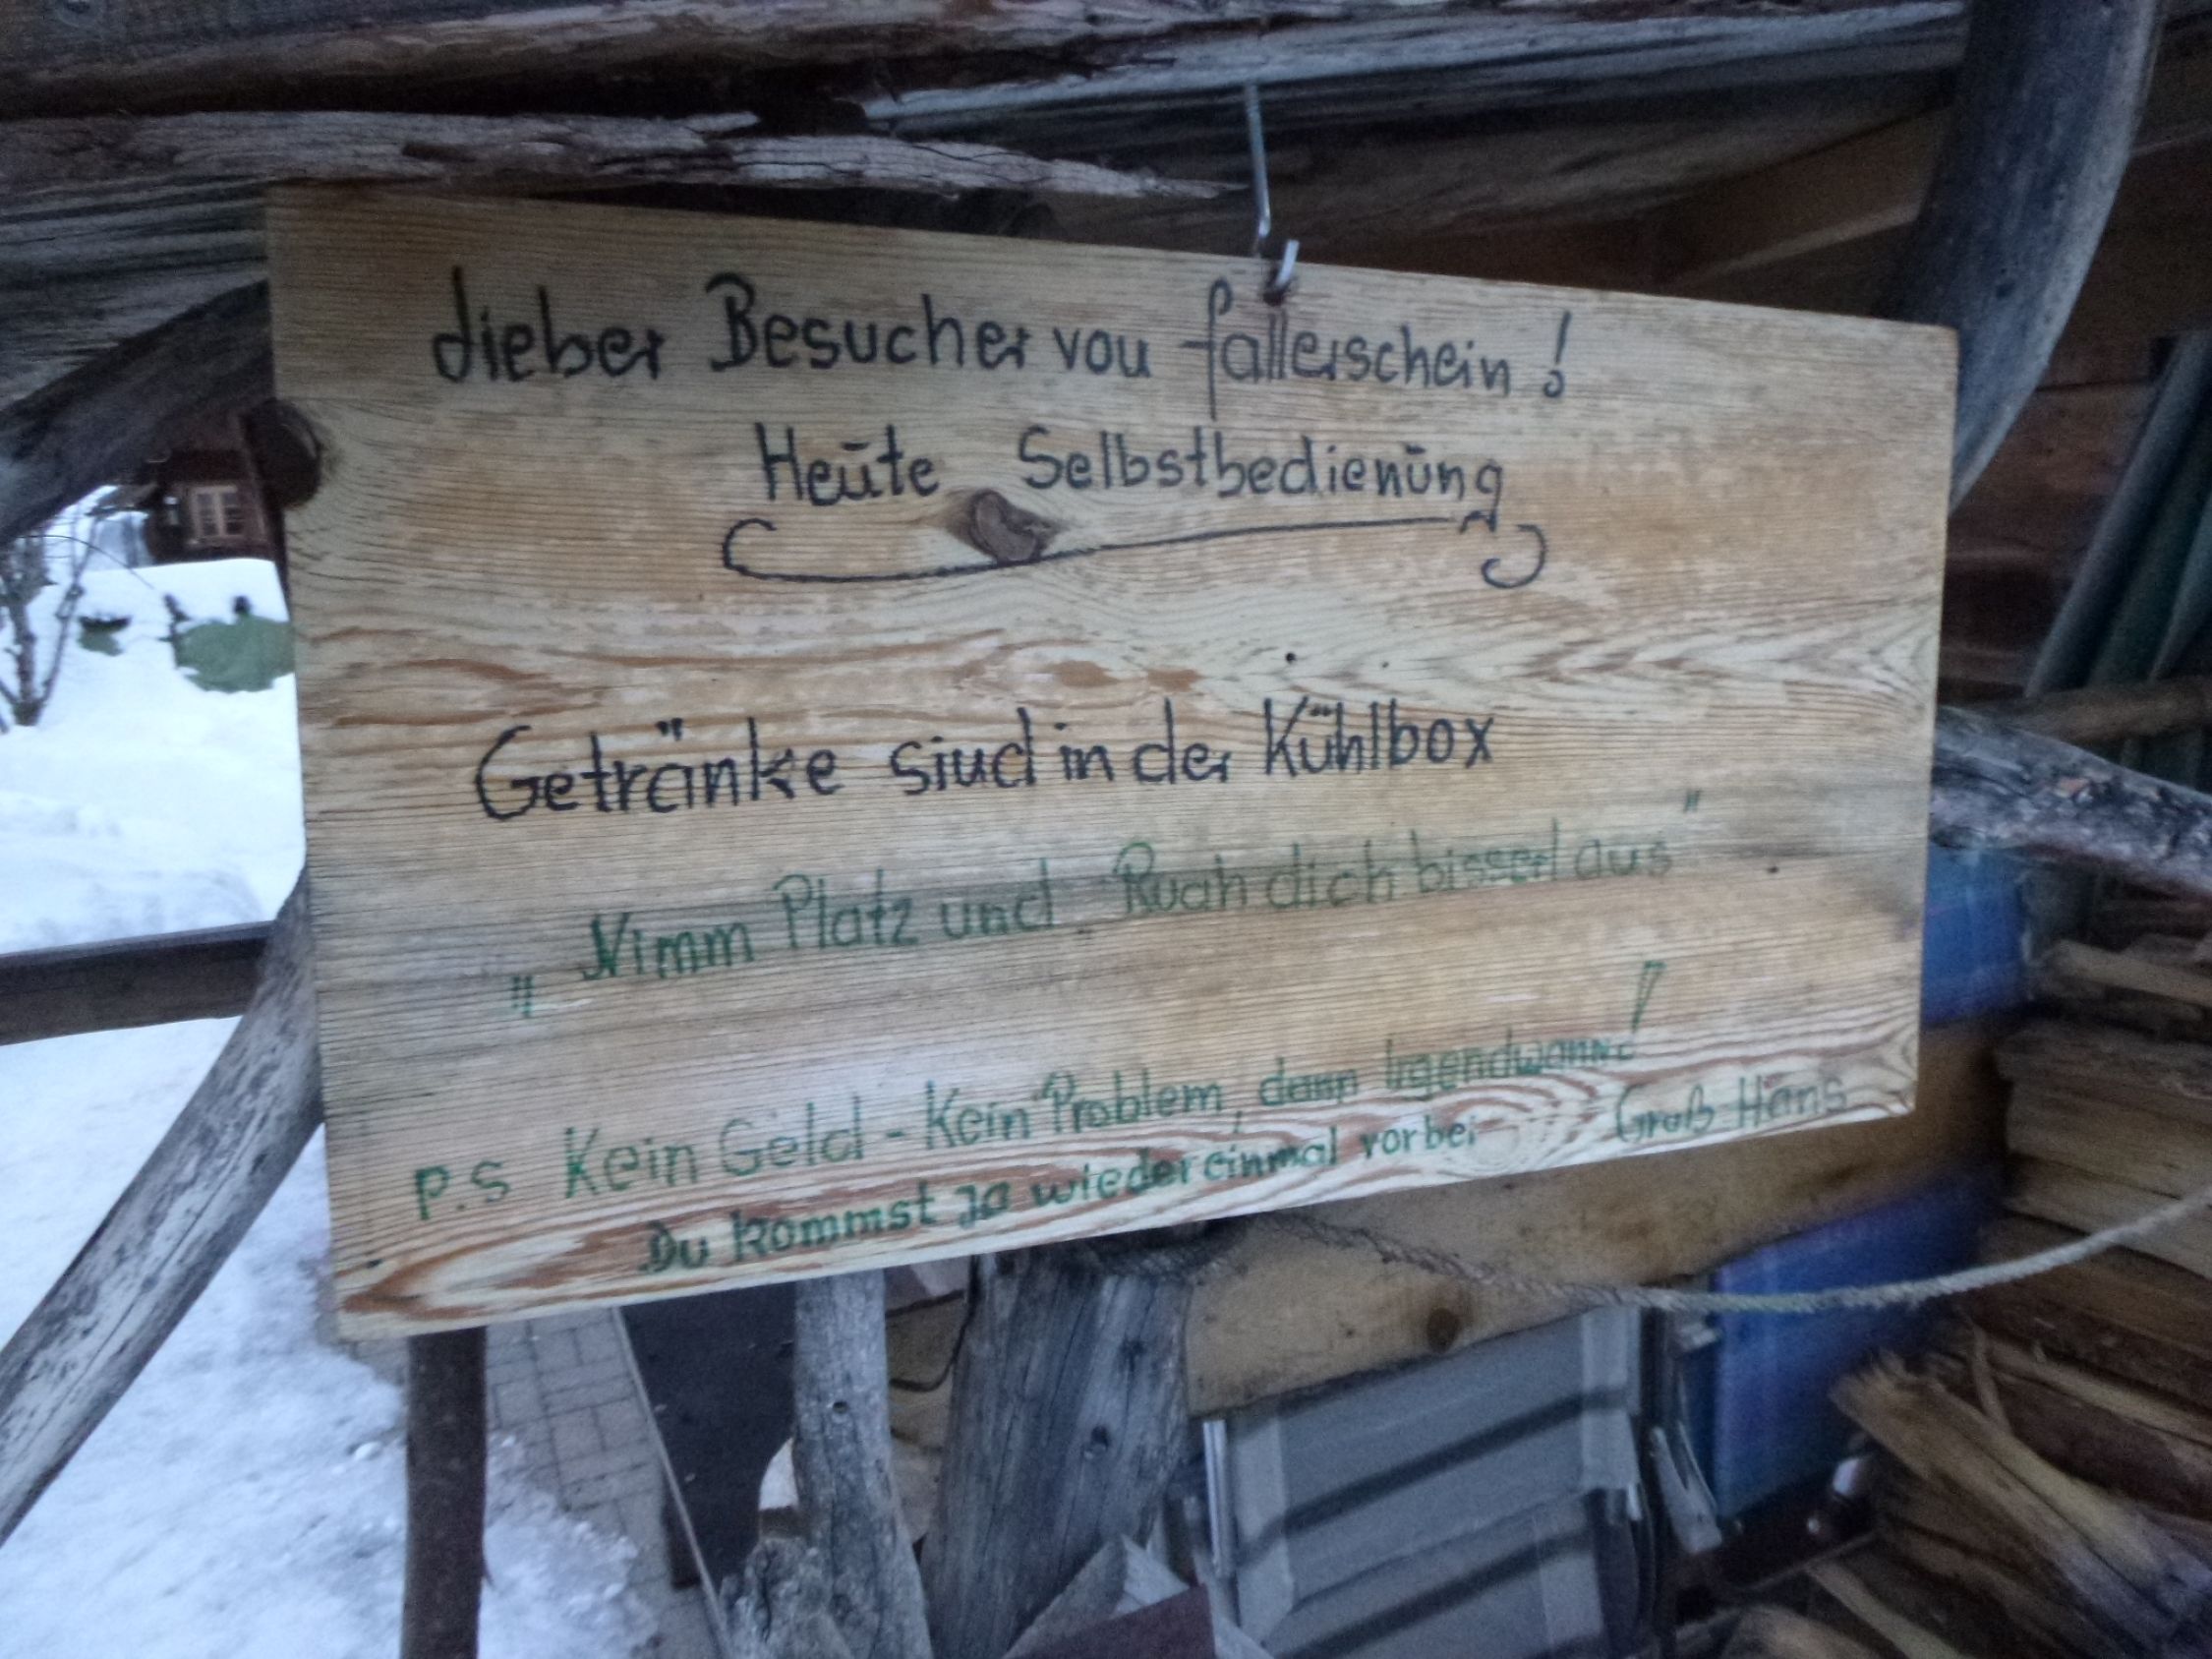 Lieber Besucher von Fallerschein!
Heute Selbstbedienung
Getränke sind in der Kühlbox
„Nimm Platz und Ruah dich bisserl aus"
P.S Kein Geld - Kein Problem, dann Irgendwann!
Du kommst ja wieder einmal vorbei Gruß Hans